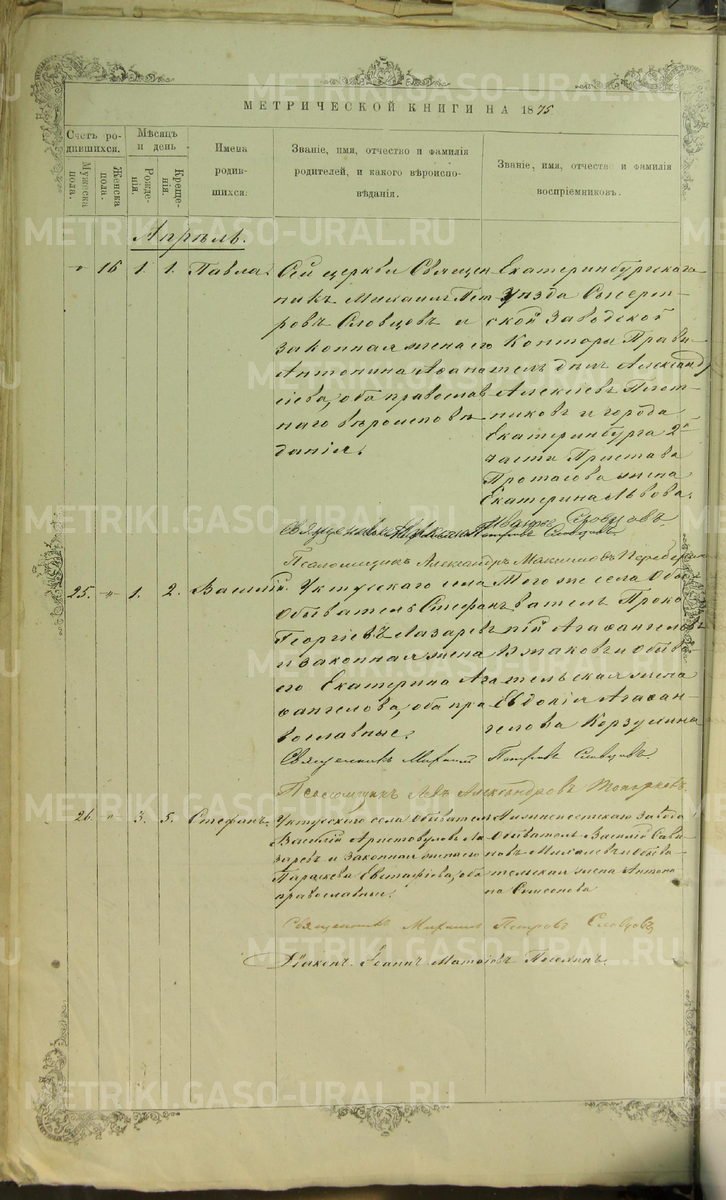 METRIKI.GASO-URAL.RU
МЕТРИЧЕСКОЙ КНИГИ НА 1875
Счетъ родившихся.
Мужеска пола.
Женска пола.
Мѣсяцъ и день
Рожденія.
Крещенія.
Имена родившихся.
Званіе, имя, отчество и фамилія родителей, и какого вѣроисповѣданія.
Званіе, имя, отчество и фамилія воспріемниковъ.
Апрѣль.
" 16 1. 1. Павла.
Сей церкви Священ
никъ Михаилъ Пет
ровъ Словцовъ и
законная жена его
Антонина Афана
сіева, оба православ
наго вѣроисповѣ
данія.
Екатеринбургскаго
уѣзда Сысерт-
ской Заводской
Конторы Прави
тель дѣлъ Александръ
Алексѣевъ Плот
никовъ и города
Екатеринбурга 2й
части Пристава
Протасова жена
Екатерина Львова.
Священникъ Петровъ Словцовъ
Псаломщикъ Александръ Максимовъ
25. " 1. 2. Василій.
Уктусскаго села
Обыватель Стефанъ
Георгіевъ Лазаревъ
и законная жена
его Екатерина Ага
фангелова, оба пра
вославные.
Того же села Обы
ватель Проко
пій Агафангеловъ
и обыва
тельская жена
Евдокія Агафан
гелова Корзунина
Священникъ Михаилъ Петровъ Словцовъ.
Псаломщикъ Левъ Александровъ Топорковъ.
26. " 3. 5. Стефанъ.
Уктусскаго села Обыватель
Василій Аристовуловъ Ла
заревъ и законная жена его
Параскева Евстафіева, оба
православные.
завода
Обыватель Василій Сави
новъ Михалевъ и обыва
тельская жена Антони
на Симеонова
Священникъ Михаилъ Петровъ Словцовъ.
Діаконъ Іоаннъ Матѳіевъ